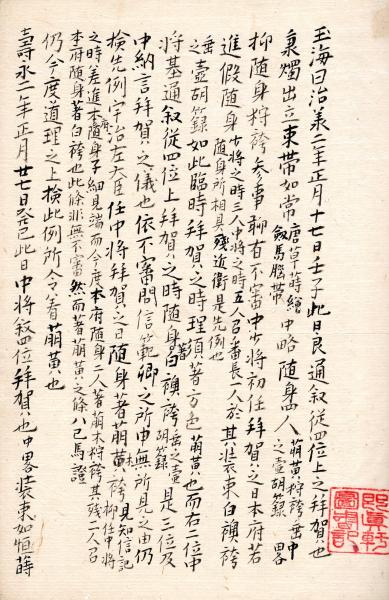 玉海曰治承二年正月十七日壬子此日良通叙従四位上之拝賀也
秉燭出立束帯如常唐草蒔絵釼馬脳帯中略随身四人萌黄狩袴岳中之壺胡籙畧
抑随身狩袴参事聊有不審中少将初任拝賀之日本府若
進假随身少将之時三人中将之時五人召番長一人於其装束白襖袴
随身所相具残近衛是先例也
壺胡籙如此臨時拝賀之時理須著方色萌黄也而右二位中
将基通叙従四位上拝賀之時随身著白襖袴胡籙是三位及
中納言拝賀之儀也依不審問信範卿之所申無所見之由仍
検先例宇治左大臣任中将拝賀之日随身著萌黄袴見知信記
之時差進本府随身子細見端而今度本府随身二人著萌木狩袴其残二人召
本府随身著白袴也此條非無不審然而著萌黄之條八己馬證
仍今度道理之上検此例所令著萌黄也
壽永二年正月廿七日癸巳此日中将叙四位拝賀也中畧装束如恒蒔